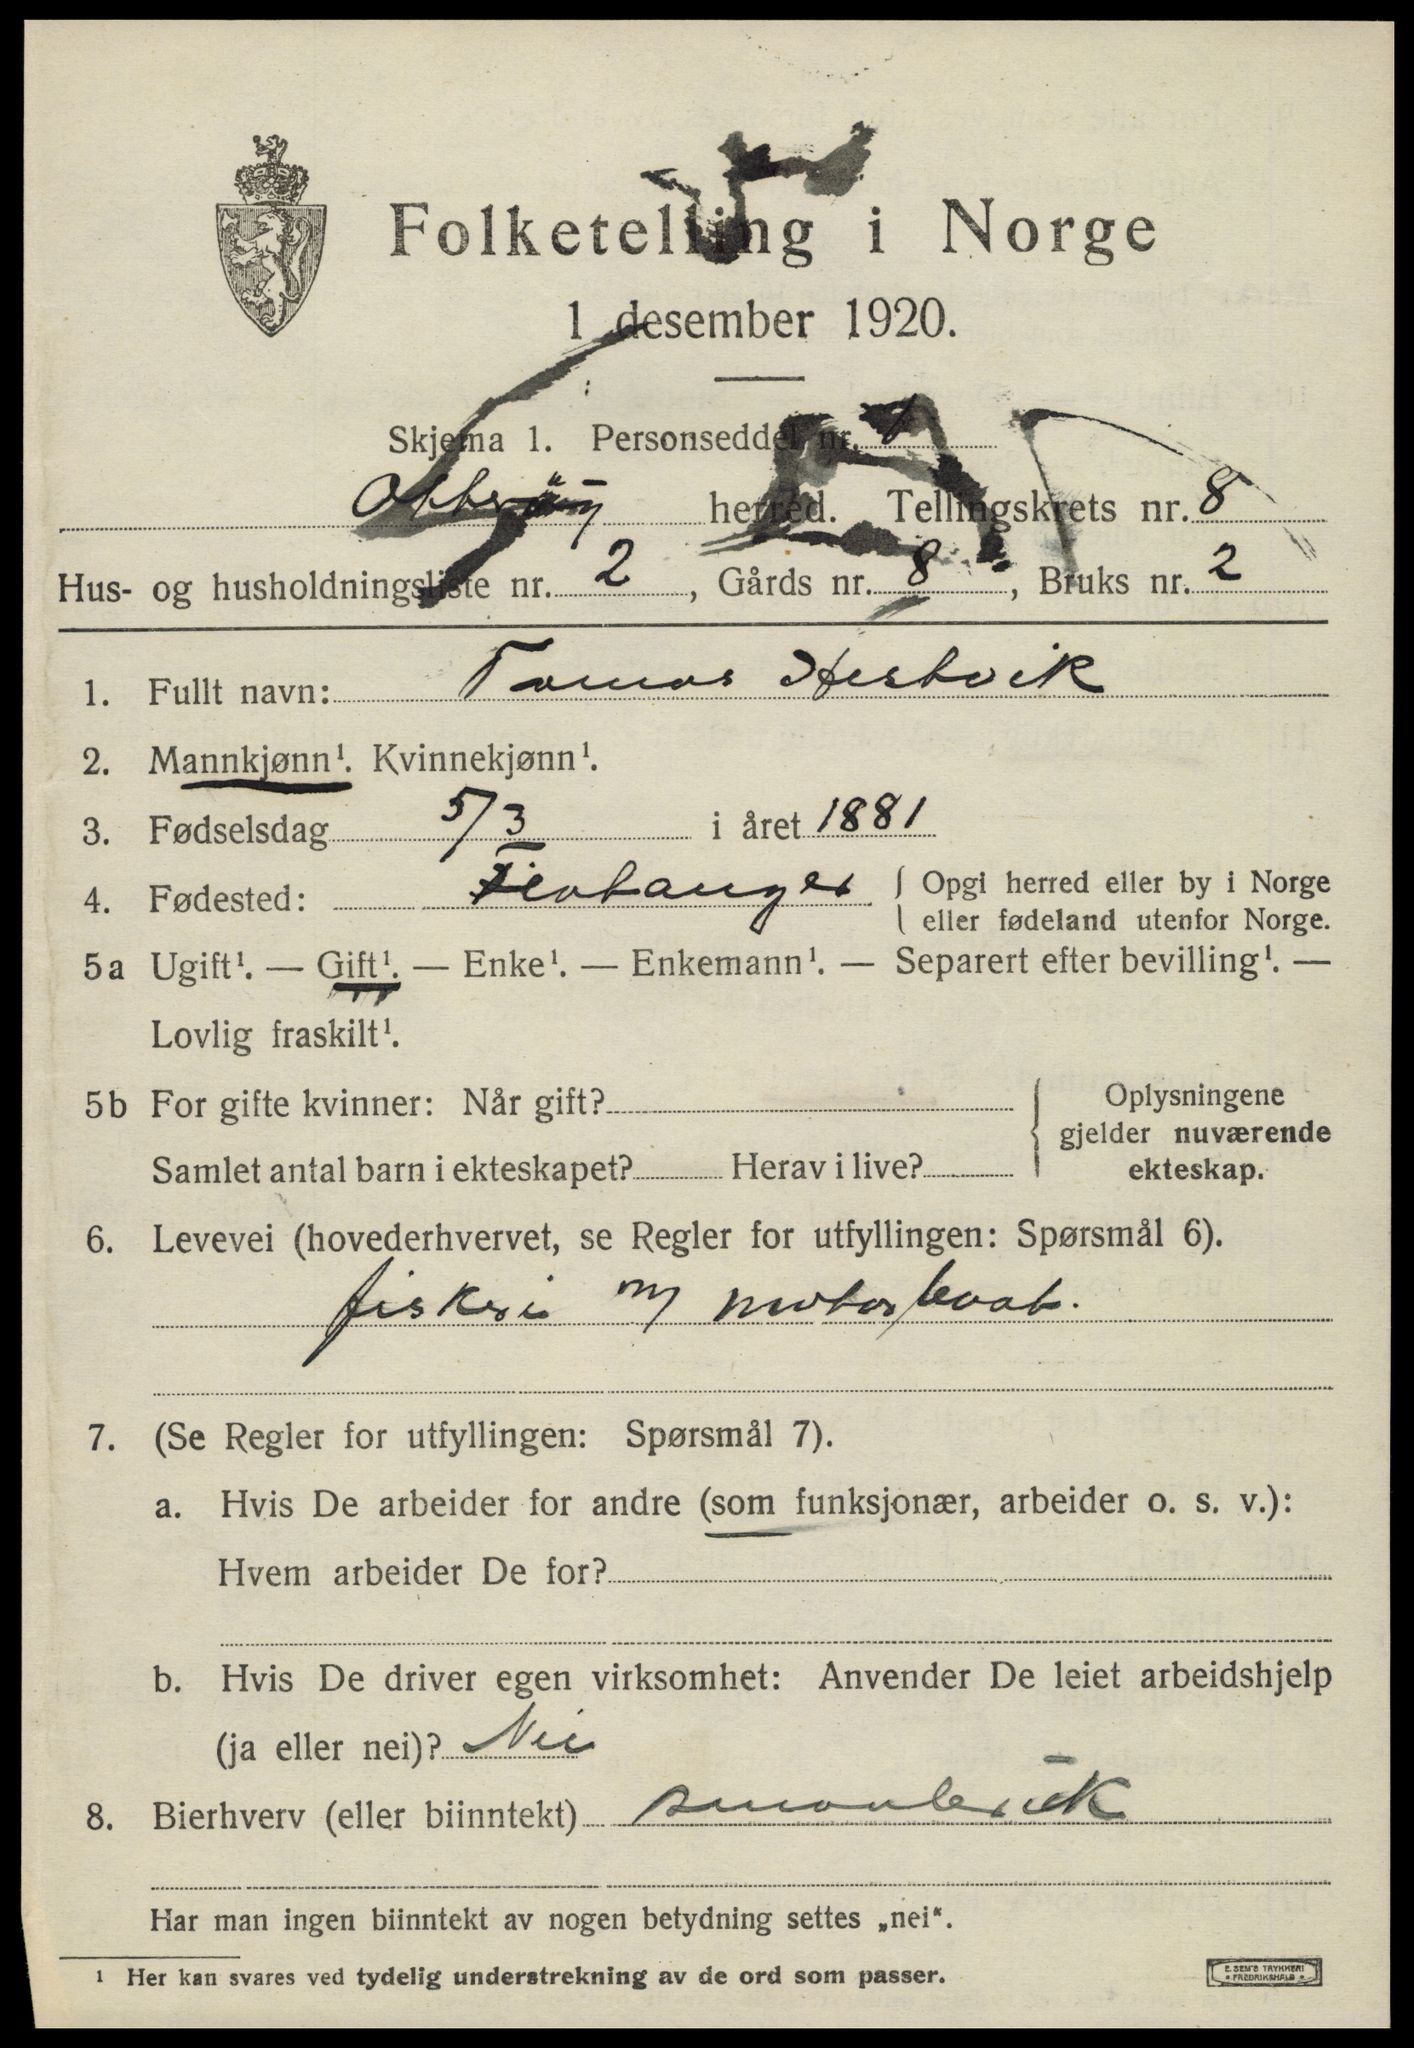 Folketelling i Norge
1 desember 1920.
Skjema 1. Personseddel nr. 1
Otterøy herred. Tellingskrets nr. 8
Hus- og husholdningsliste nr. 2, Gårds nr. 8, Bruks nr. 2
1. Fullt navn: Tomas Hestvik
2. Mannkjønn¹. Kvinnekjønn¹.
3. Fødselsdag 5/3 i året 1881
4. Fødested: { Opgi herred eller by i Norge
eller fødeland utenfor Norge.
5a Ugift¹. — Gift¹. — Enke¹. — Enkemann¹. — Separert efter bevilling¹. —
Lovlig fraskilt¹.
5b For gifte kvinner: Når gift? { Oplysningene
gjelder nuværende
Samlet antal barn i ekteskapet? Herav i live?
ekteskap.
6. Levevei (hovederhvervet, se Regler for utfyllingen: Spørsmål 6).
fiskeri m/ motorbaat.
7. (Se Regler for utfyllingen: Spørsmål 7).
a. Hvis De arbeider for andre (som funksjonær, arbeider o. s. v.):
Hvem arbeider De for?
b. Hvis De driver egen virksomhet: Anvender De leiet arbeidshjelp
(ja eller nei)? Nei
8. Bierhverv (eller biinntekt) smaabruk
Har man ingen biinntekt av nogen betydning settes „nei“.
¹ Her kan svares ved tydelig understrekning av de ord som passer.
E. SEM'S TRYKKERI
FREDRIKSHALD